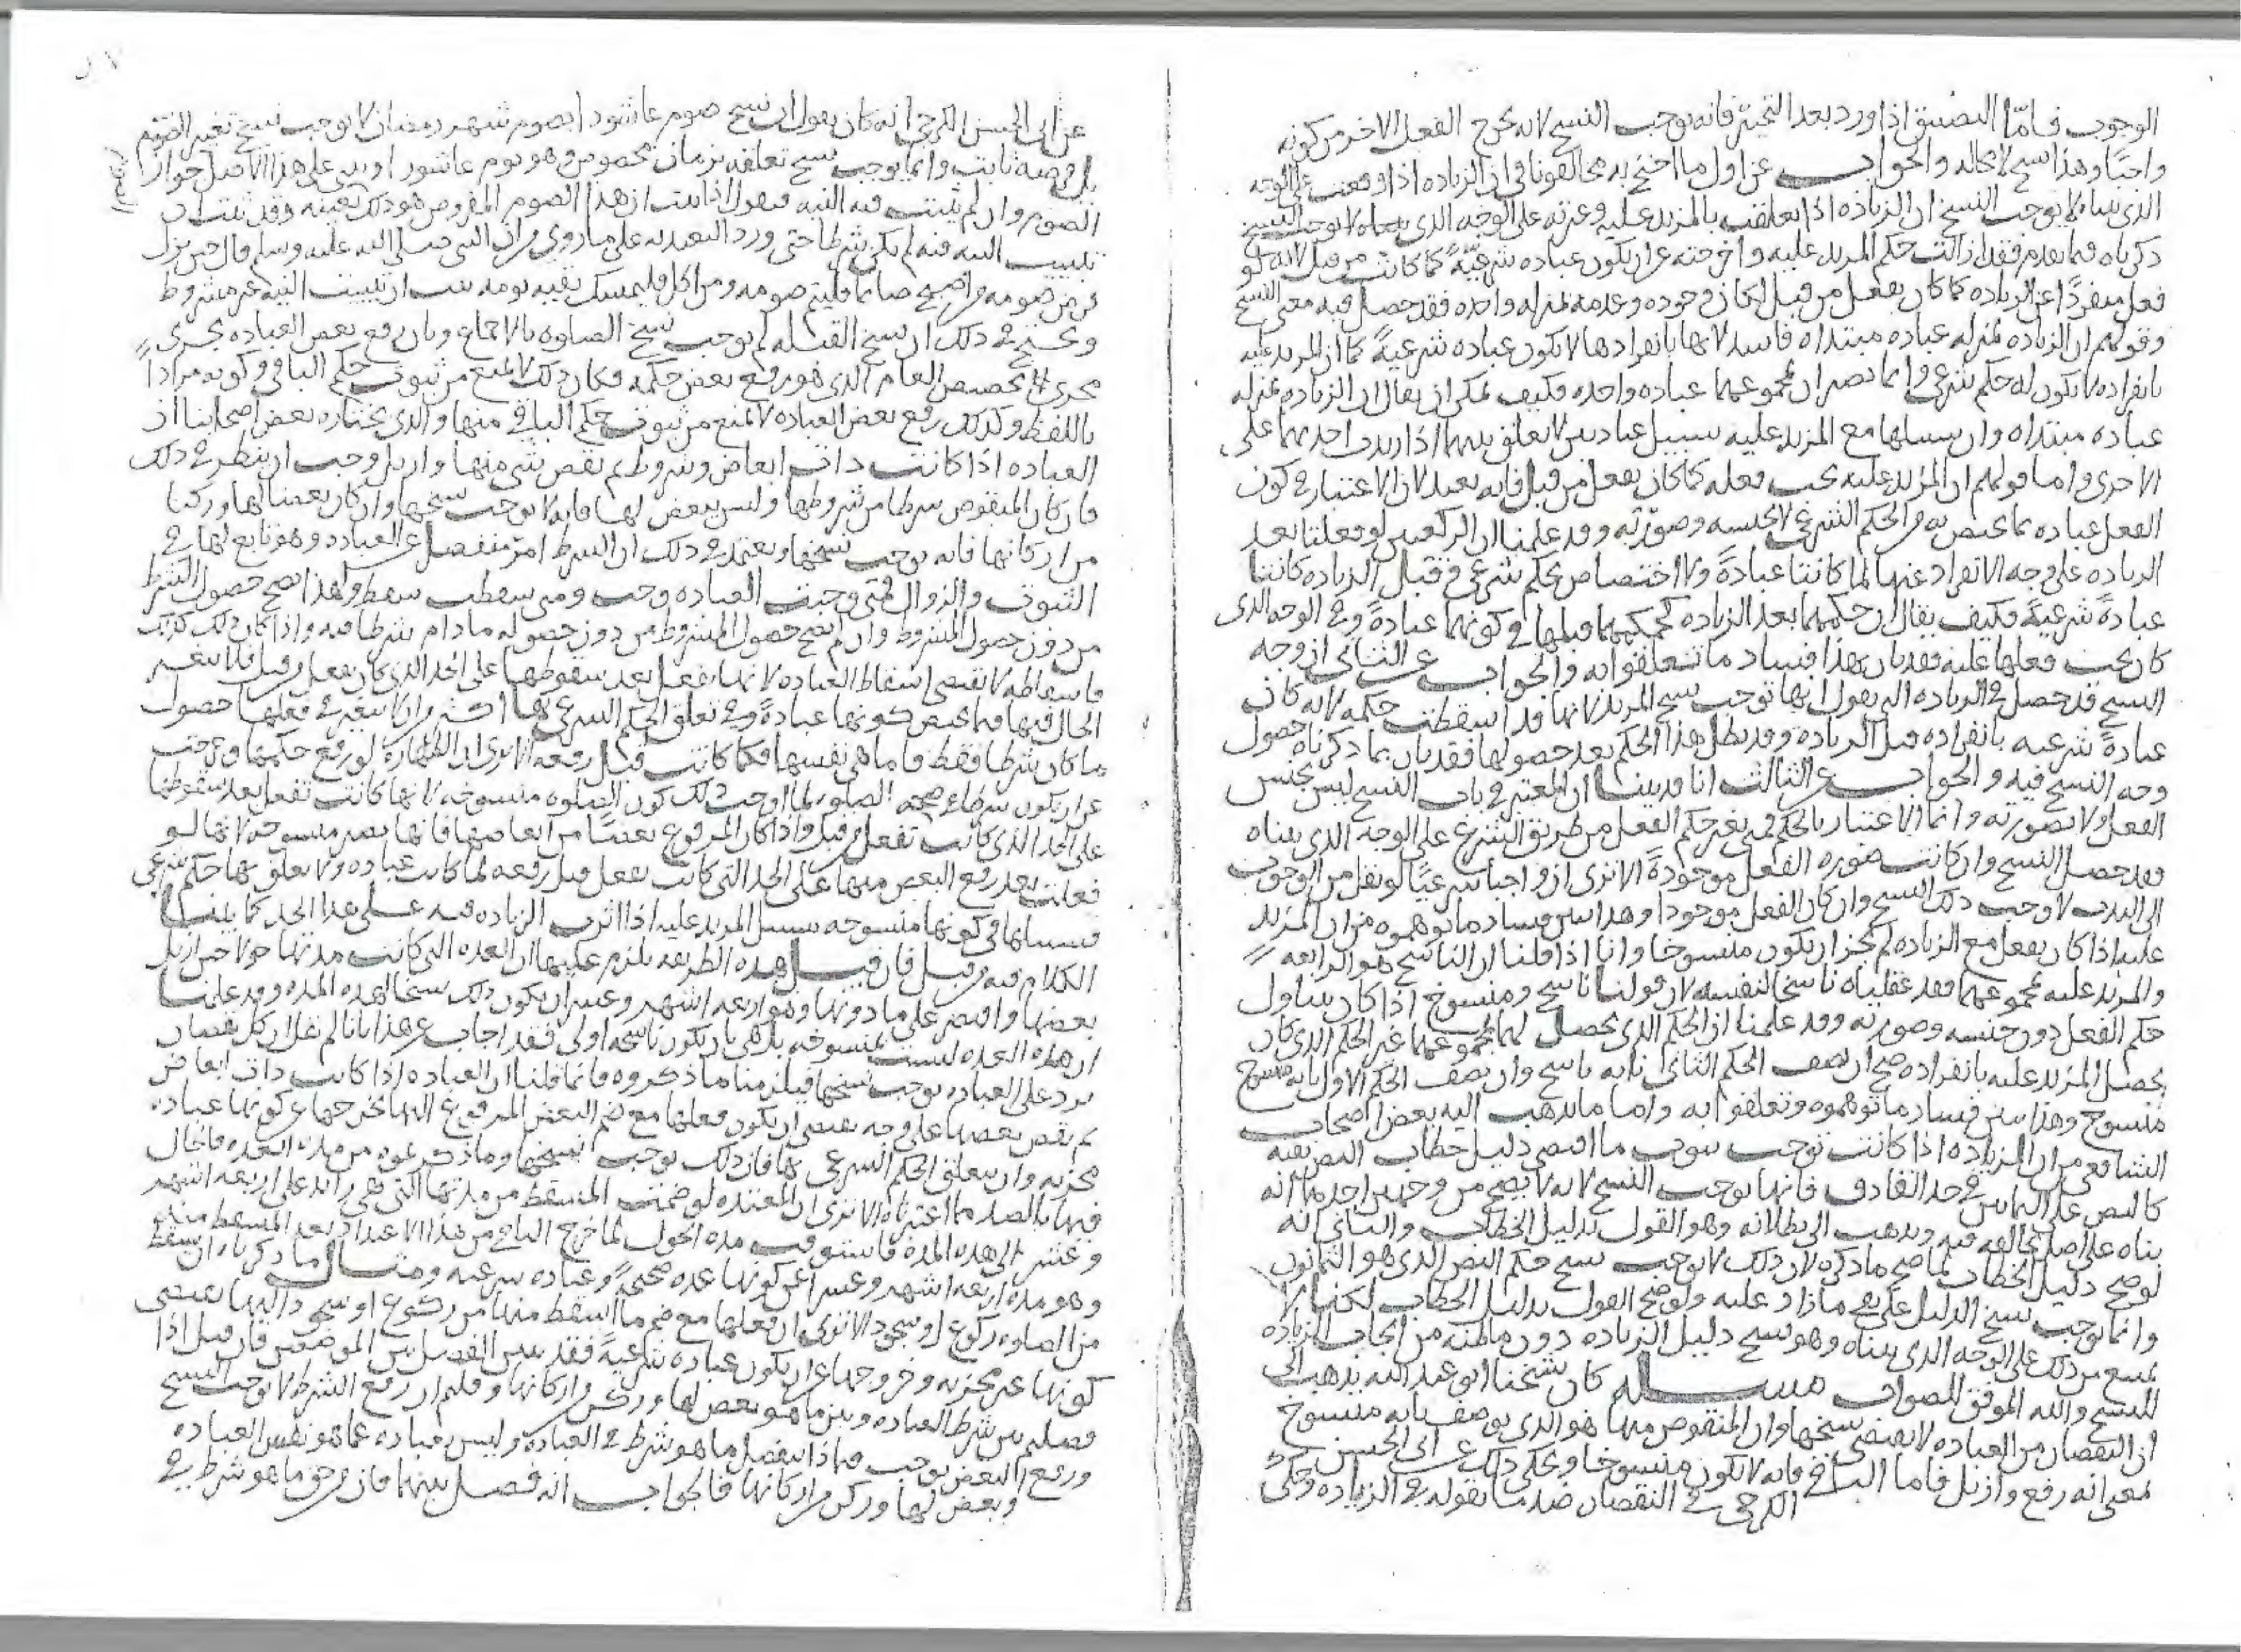 الوجوب فامّا التضييق اذا ورد بعد التخيير فانه يوجب النسخ لانه يخرج الفعل الاخر من كونه
واجبًا وهذا نسخ لا محاله والجواب عن اول ما احتج به مخالفونا في ان الزياده اذا وقعت على الوجه
الذي بيناه لا يوجب النسخ ان الزياده اذا تعلقت بالمزيد عليه وغيرته على الوجه الذي بيناه لا يوجب النسخ
ذكرناه فيما تقدم فقد ازالت حكم المزيد عليه واخرجته عن ان يكون عباده شرعيّةً كما كانت من قبل لانه لو
فعل منفردًا عن الزياده كما كان يفعل من قبل لكان وجوده وعدمه بمنزله واحده فقد حصل فيه معنى النسخ
وقولهم ان الزياده بمنزله عباده مبتداه فاسد لانها بانفرادها لا تكون عباده شرعيةً كما ان المزيد عليه
بانفراده لا يكون له حكم شرعي وانما تصيران بمجموعهما عباده واحده فكيف يمكن ان يقال ان الزياده بمنزله
عباده مبتداه وان سبيلها مع المزيد عليه سبيل عبادتين لا تعلق بينهما اذا زيدت احديهما على
الاخرى واما قولهم ان المزيد عليه يجب فعله كما كان يفعل من قبل فانه بعيد لان الاعتبار في كون
الفعل عباده بما يختص به من الحكم الشرعي لا بجنسه وصورته وقد علمنا ان الركعتين لو فعلتا بعد
الزياده على وجه الانفراد عنها لما كانتا عبادةً ولا اختصاص بحكم شرعي وقبل الزياده كانتا
عبادةً شرعيةً فكيف يقال ان حكمهما بعد الزياده كحكمهما قبلها في كونهما عبادةً وفي الوجه الذي
كان يجب فعلها عليه فقد بان بهذا فساد ما تعلقوا به والجواب عن الثاني ان وجه
النسخ قد حصل في الزياده التي نقول انها توجب نسخ المزيد لانها قد اسقطت حكمه لانه كان
عبادةً شرعيه بانفراده قبل الزياده وقد بطل هذا الحكم بعد حصولها فقد بان بما ذكرناه حصول
وجه النسخ فيه والجواب عن الثالث انا قد بينا ان المعتبر في باب النسخ ليس بجنس
الفعل ولا بصورته وانما الاعتبار بالحكم فمتى تغير حكم الفعل من طريق الشرع على الوجه الذي بيناه
فقد حصل النسخ وان كانت صوره الفعل موجودةً الا ترى ان واجبا شرعيًا لو نقل من الوجوب
الى الندب لاوجب ذلك النسخ وان كان الفعل موجودا وهذا يبين فساد ما توهموه من ان المزيد
عليه اذا كان يفعل مع الزياده لم يجز ان يكون منسوخا وانا اذا قلنا ان الناسخ هو الرابعه
والمزيد عليه بمجموعهما فقد جعلناه ناسخا لنفسه لان قولنا ناسخ ومنسوخ اذا كان يتناول
حكم الفعل دون جنسه وصورته وقد علمنا ان الحكم الذي يحصل لهما بمجموعهما غير الحكم الذي كان
يحصل المزيد عليه بانفراده صح ان نصف الحكم الثاني بانه ناسخ وان نصف الحكم الاول بانه منسوخ
منسوخ وهذا يبين فساد ما توهموه وتعلقوا به واما ما يذهب اليه بعض اصحاب
الشافعي من ان الزياده اذا كانت توجب ثبوت ما اقتضى دليل خطاب النص نفيه
كالنص على الثمانين في حد القاذف فانها توجب النسخ لانه لا يصح من وجهين احدهما انه
بناه على اصل نخالفه فيه ونذهب الى بطلانه وهو القول بدليل الخطاب والثاني انه
لو صح دليل الخطاب لما صح ما ذكره لان ذلك لا يوجب نسخ حكم النص الذي هو الثمانون
وانما يوجب نسخ الدليل على نفي ما زاد عليه ولو صح القول بدليل الخطاب لكنا لا
نمنع من ذلك على الوجه الذي بيناه وهو نسخ دليل الزياده دون ما ظنه من ايجاب الزياده
للنسخ والله الموفق للصواب مسـله كان شيخنا ابو عبد الله يذهب الى
ان النقصان من العباده لا يقتضي نسخها وان المنقوص منها هو الذي يوصف بانه منسوخ
بمعنى انه رفع وازيل فاما الباقي فانه لا يكون منسوخا ويحكي ذلك عن ابي الحسن
الكرخي في النقصان ضد ما نقوله في الزياده وحكى
عن ابي الحسن الكرخي انه كان يقول ان نسخ صوم عاشورا بصوم شهر رمضان لا يوجب نسخ تغير الصوم
الصوم وان لم يثبت فيه النيه فيقول اذا ثبت ان هذا الصوم المفروض هو ذلك بعينه وقد ثبت ان
تبييت النيه فيه لم يكن شرطا حتى ورد التعبد به على ما روي من ان النبي صلى الله عليه وسلم قال حين نزل
فرض صومه من اصبح صائما فليتم صومه ومن اكل فليمسك بقيه يومه ثبت ان تبييت النيه غير مشروط
ويحتج في ذلك ان نسخ القبله لم يوجب نسخ الصلوه بالاجماع وبان رفع بعض العباده يجري
مجرى تخصيص العام الذي هو رفع بعض حكمه فكان ذلك لا يمنع من ثبوت حكم الباقي وكونه مرادًا
باللفظ وكذلك رفع بعض العباده لا يمنع من ثبوت حكم الباقي منها والذي يختاره بعض اصحابنا ان
العباده اذا كانت ذات ابعاض وشروط ثم نقص شي منها وازيل وجب ان ينظر في ذلك
فان كان المنقوص شرطا من شروطها وليس ببعض لها فانه لا يوجب نسخها وان كان بعضا لها وركنا
من اركانها فانه يوجب نسخها ويعتمد في ذلك ان الشرط امر منفصل عن العباده وهو تابع لها في
الثبوت والزوال فمتى وجبت العباده وجب ومتى سقطت سقط ولهذا يصح حصول الشرط
من دون حصول المشروط وان لم يصح حصول المشروط من دون حصوله ما دام شرطا فيه واذا كان ذلك كذلك
فاسقاطه لا يقتضي اسقاط العباده لانها تفعل بعد سقوطها على الحد الذي كان يفعل من قبل فلا يتغير
الحال فيها فيما يختص كونها عبادةً وفي تعلق الحكم الشرعي بها اكثر من ان لا يعتبر في فعلها حصول
ما كان شرطا فقط فاما هي نفسها فكما كانت قبل رفعه الا ترى ان الطهاره لو رفع حكمها وخرجت
عن ان يكون شرطا في صحه الصلوه لما اوجب ذلك كون الصلوه منسوخه لانها كانت تفعل بعد سقوطها
على الحد الذي كانت تفعل من قبل واذا كان المرفوع بعضًا من ابعاضها فانها تصير منسوخه لانها لو
فعلت بعد رفع البعض منها على الحد التي كانت تفعل قبل رفعه لما كانت عباده ولا تعلق بها حكم شرعي
فسبيلها في كونها منسوخه سبيل المزيد عليه اذا اثرت الزياده فيه على هذا الحد كما بينا
الكلام فيه من قبل فان قيل هذه الطريقه يلزم عليها ان العده التي كانت مدتها حولا حين ازيل
بعضها واقتصر على ما دونها وهو اربعه اشهر وعشر ان يكون ذلك نسخا لهذه المده وقد علمنا
ان هذه العده ليست بمنسوخه بل هي بان يكون ناسخه اولى فقد اجاب عن هذا بانا لم نقل ان كل نقصان
يرد على العباده يوجب نسخها فيلزمنا ما ذكروه فانما قلنا ان العباده اذا كانت ذات ابعاض
ثم نقص بعضها على وجه يقتضي ان يكون فعلها مع ضم البعض المرفوع اليها يخرجها عن كونها عباده
مجزيه وان يتعلق الحكم الشرعي بها فان ذلك يوجب نسخها وما ذكرتموه من هذه العده فالحال
فيها بالضد مما اعتبرناه الا ترى ان المعتده لو ضمت المسقط من مدتها التي هي زائد على اربعه اشهر
وعشر الى هذه المده فاستوفت مده الحول لما خرج الباقي من هذا الاعتداد بعد المسقط منه
وهو مده اربعه اشهر وعشر عن كونها عده صحيحةً وعباده شرعيه ومثال ما ذكرناه ان يسقط
من الصلوه ركوع او سجود الا ترى ان فعلها مع ضم ما اسقط منها من ركوع او سجود اليها يقتضي
كونها غير مجزيه وخروجها عن ان يكون عباده شرعيةً فقد بين الفصل بين الموضعين فان قيل اذا
فصلتم بين شرط العباده وبين ما هو بعض لها وركن من اركانها وقلتم ان رفع الشرط لا يوجب النسخ
ورفع البعض يوجب فبماذا ينفصل ما هو شرط في العباده وليس بعباده عما هو نفس العباده
وبعض لها وركن من اركانها فالجواب انه فصل بينهما فان من حق ما هو شرط في